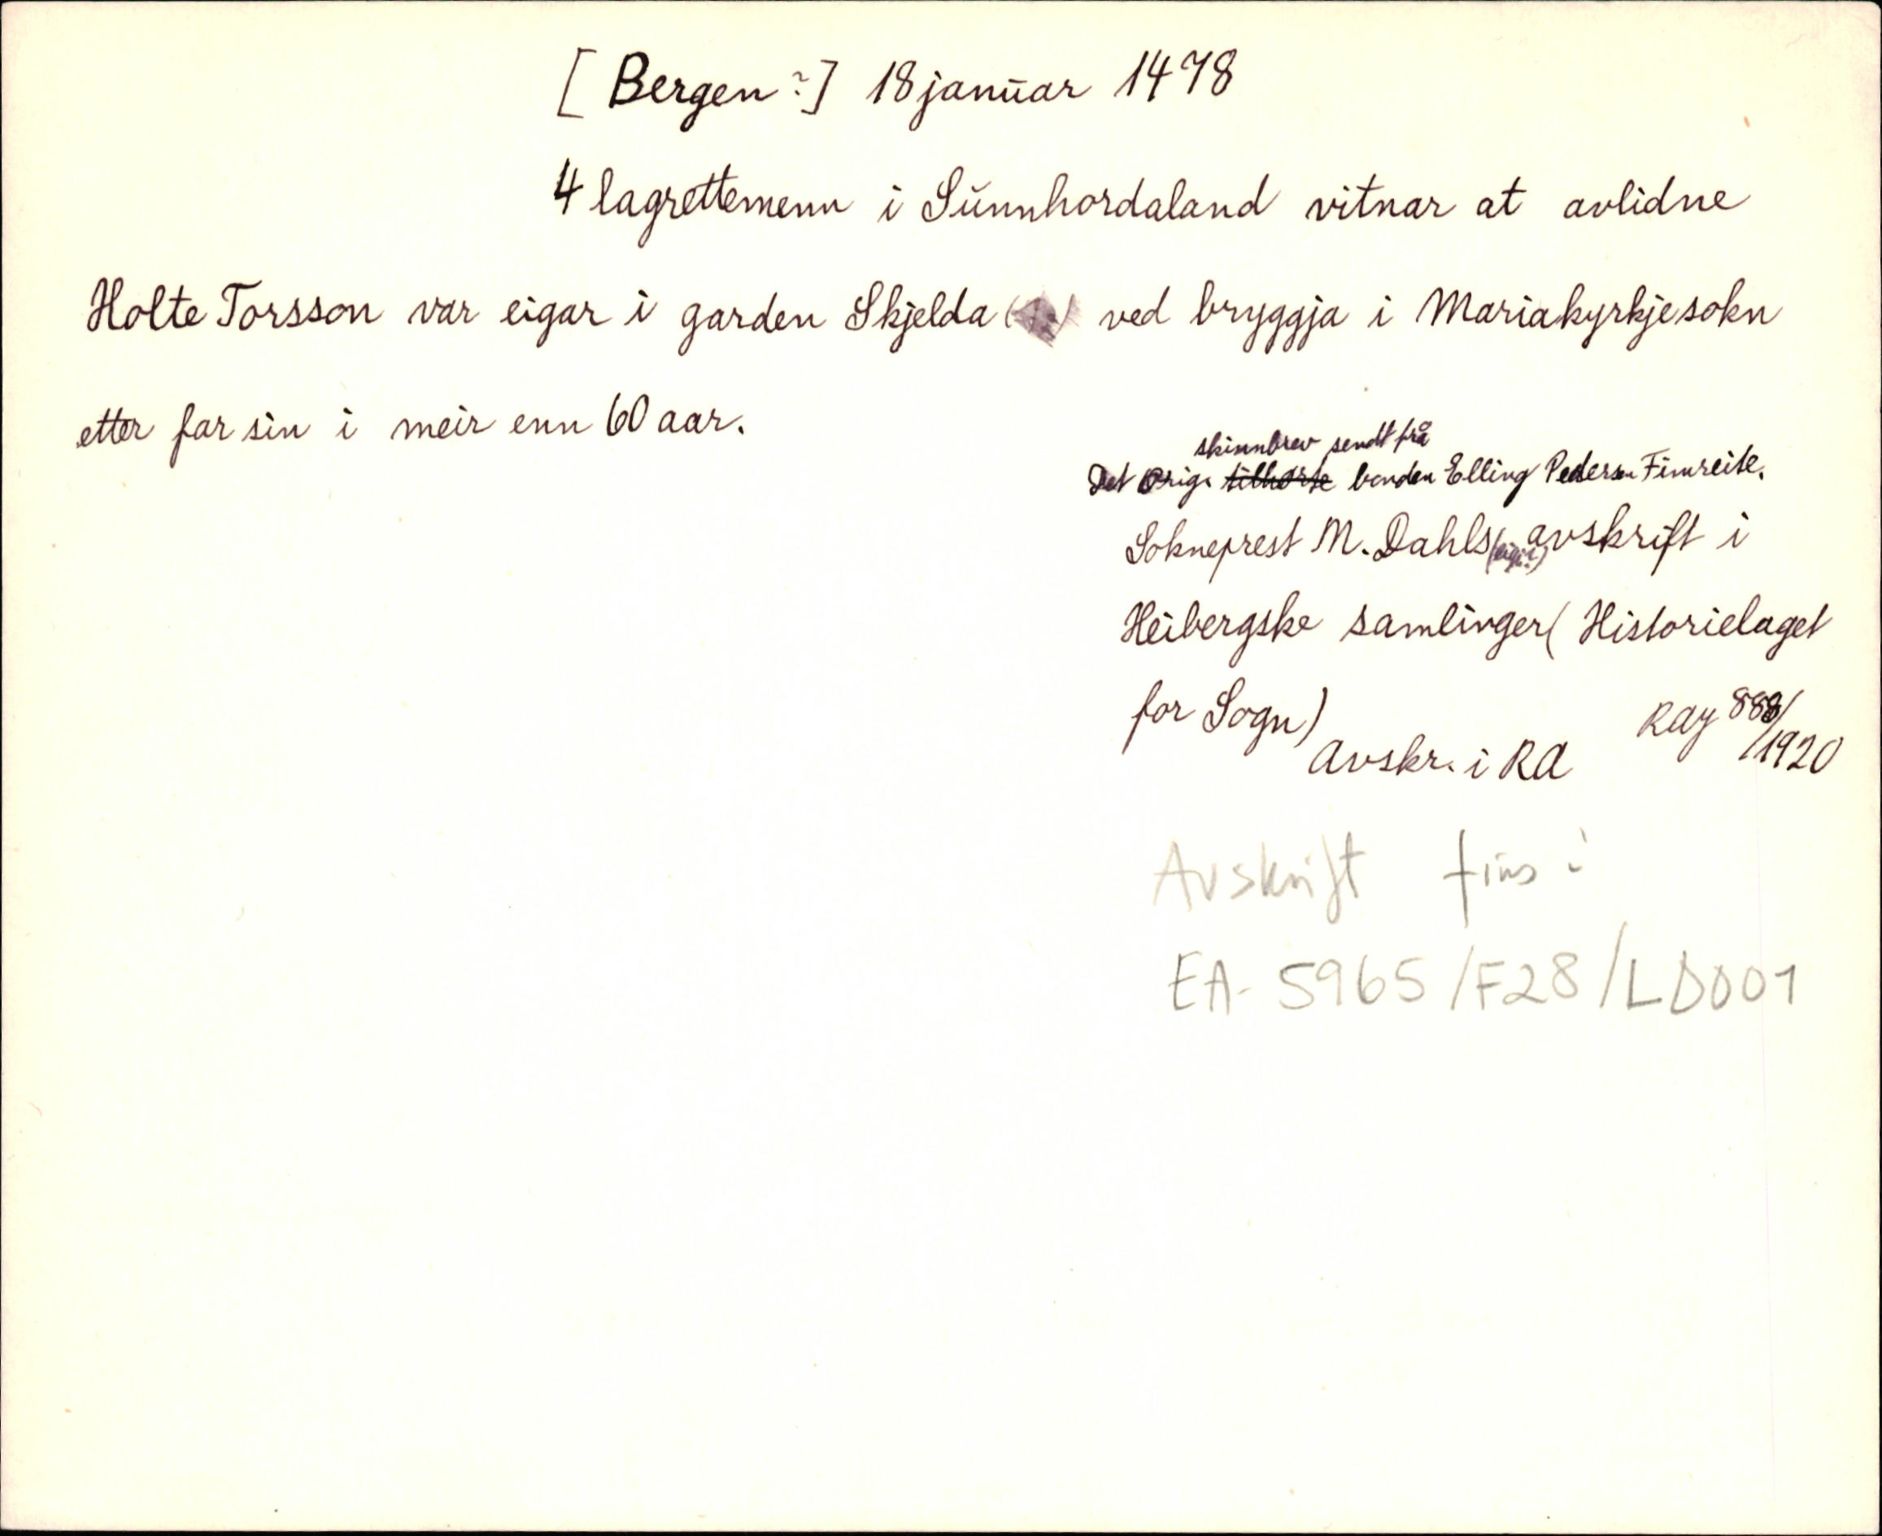 [ Bergen ? ] 18 januar 1478
4 lagrettemenn i Sunnhordaland vitnar at avlidne
Holte Torsson var eigar i garden Skjelda ved bryggja i Mariakyrkjesokn
etter far sin i meir enn 60 aar.
skinnbrev sendt frå
Det orig. tilhørte bonden Elling Pedersen Fimreite.
Sokneprest M. Dahls avskrift i
Heibergske samlinger ( Historielaget
for Sogn)
RAy 888/1920
Avskr. i RA
Avskrift fins i
EA-5965/F28/LD001